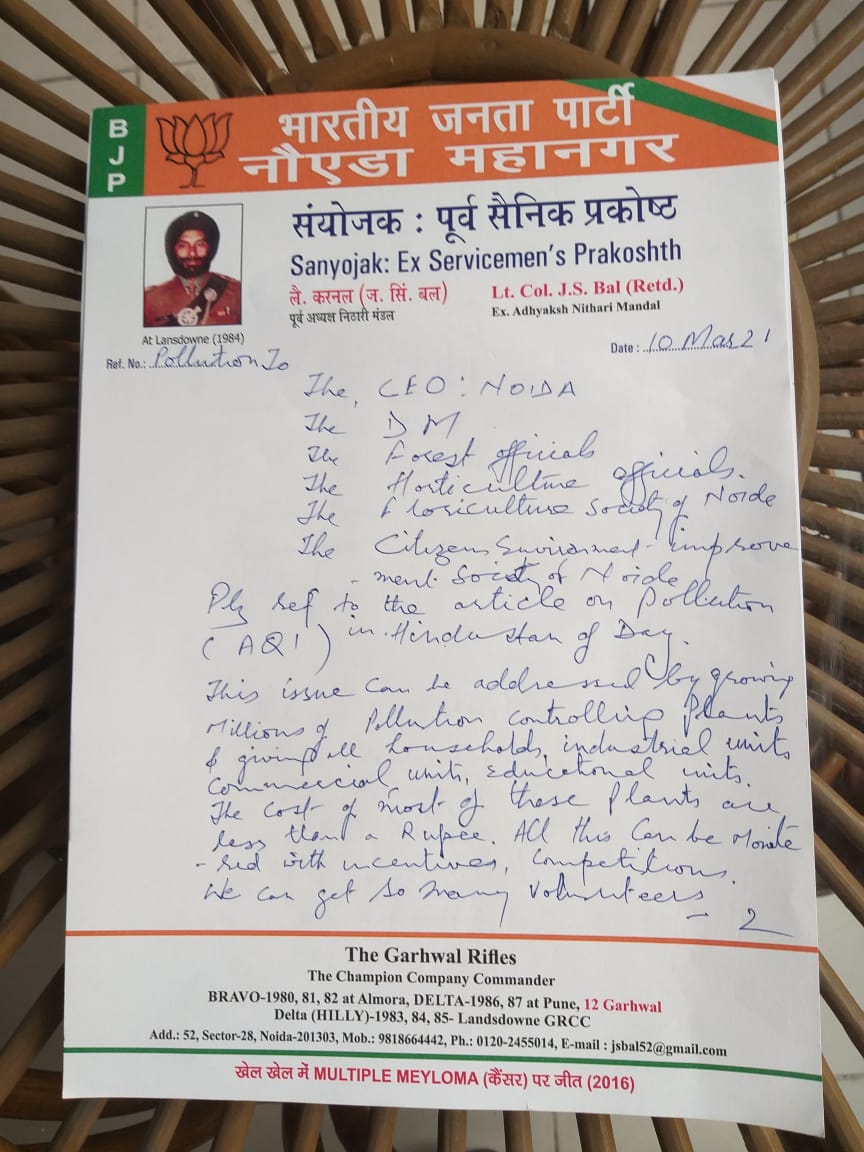 BJP
भारतीय जनता पार्टी
नौएडा महानगर
संयोजक : पूर्व सैनिक प्रकोष्ठ
Sanyojak: Ex Servicemen's Prakoshth
लै. करनल (ज. सिं. बल) Lt. Col. J.S. Bal (Retd.)
पूर्व अध्यक्ष निठारी मंडल Ex. Adhyaksh Nithari Mandal
At Lansdowne (1984)
Ref. No.: Pollution To Date : 10 Mar 21
The, CEO : NOIDA
The DM
The Forest officials
The Horticulture officials.
The Floriculture Society of Noida
The Citizens Environment improve
- ment Society of Noida
Plz ref to the article on Pollution
(AQI) in Hindustan of Day.
This issue can be addressed by growing
Millions of Pollution controlling Plants
& giving all households, industrial units
commercial units, educational units.
The cost of most of these plants are
less than a Rupee. All this can be Monito
- red with incentives, competitions.
We can get so many volunteers
- 2
The Garhwal Rifles
The Champion Company Commander
BRAVO-1980, 81, 82 at Almora, DELTA-1986, 87 at Pune, 12 Garhwal
Delta (HILLY)-1983, 84, 85- Landsdowne GRCC
Add.: 52, Sector-28, Noida-201303, Mob.: 9818664442, Ph.: 0120-2455014, E-mail : jsbal52@gmail.com
खेल खेल में MULTIPLE MEYLOMA (कैंसर) पर जीत (2016)